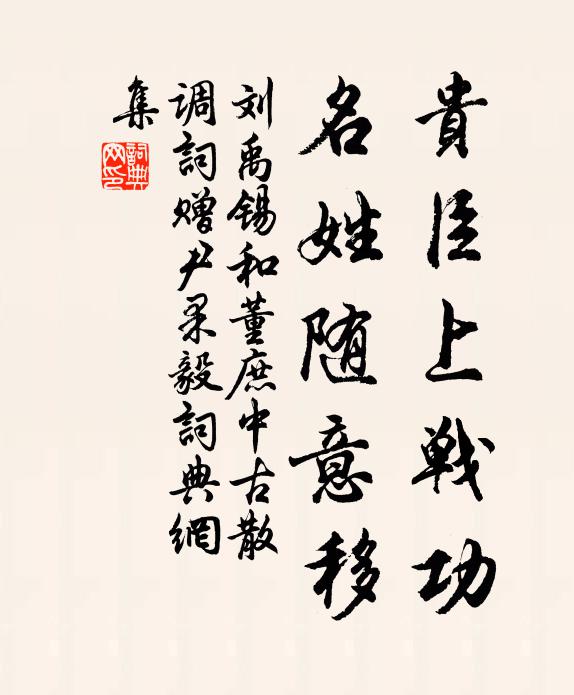 貴臣上戦功
名姓随意移
刘禹锡和董庶中古散
调詞赠尹果毅詞典網
集
詞典網